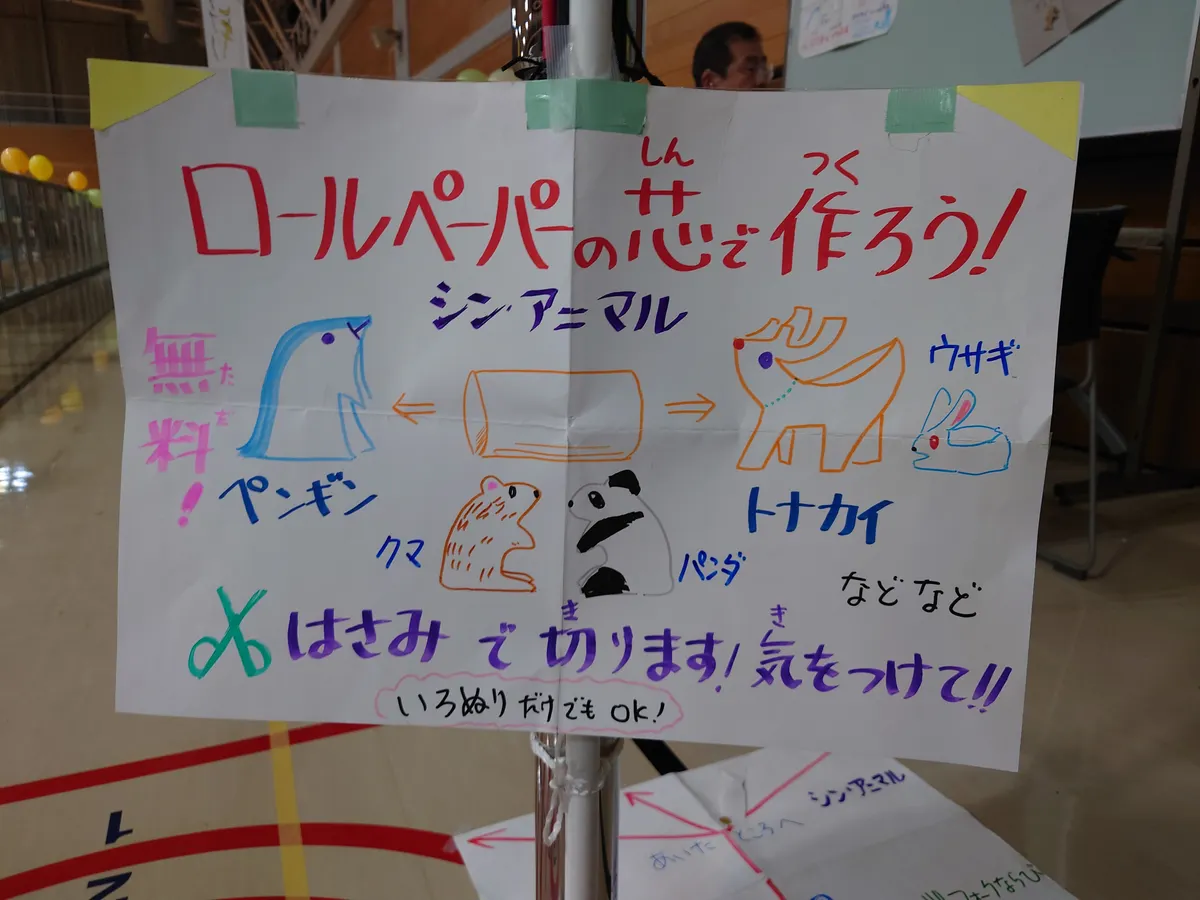 ロールペーパーの芯で作ろう!
しん
つく
シン・アニマル
無料!
ただ
ペンギン
トナカイ
ウサギ
クマ
パンダ
などなど
はさみで切ります!気をつけて!!
き
き
いろぬりだけでもOK!
シン・アニマル
あいた
ところへ
1
2